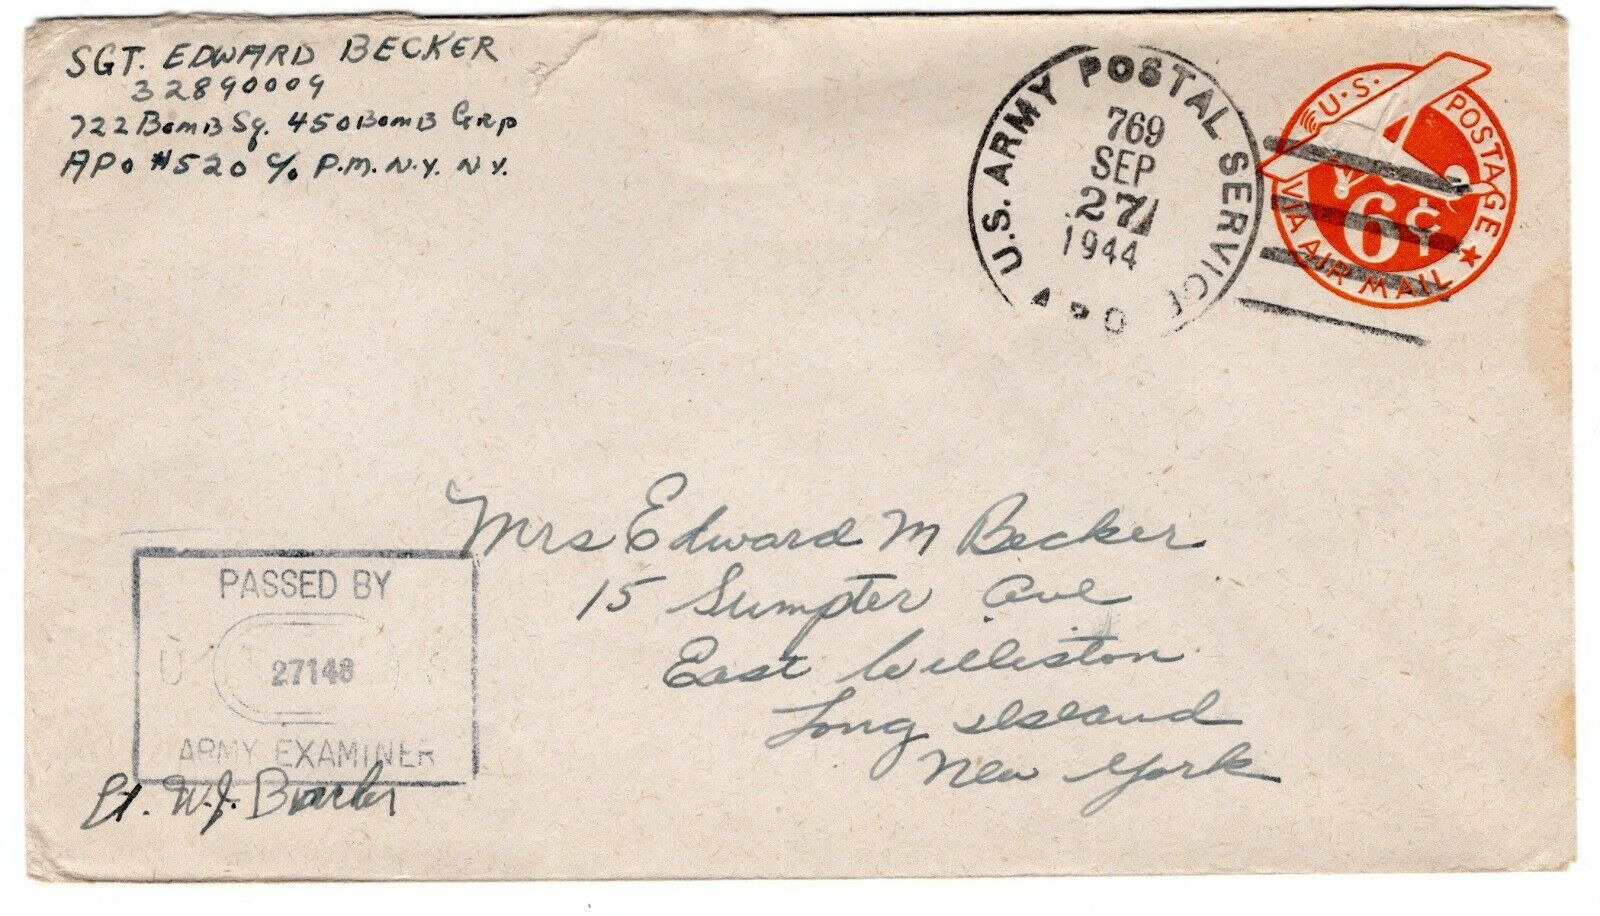 SGT. EDWARD BECKER
32890009
722 BOMB Sq. 450 BOMB GRP
APO #520 c/o P.M. N.Y. N.Y.
U.S. ARMY POSTAL SERVICE
769
SEP
27
1944
APO
U.S. POSTAGE
6¢
VIA AIR MAIL
Mrs Edward M Becker
15 Sumpter Ave
East Williston
Long Island
New York
PASSED BY
U 27148 S
ARMY EXAMINER
Lt. W.J.